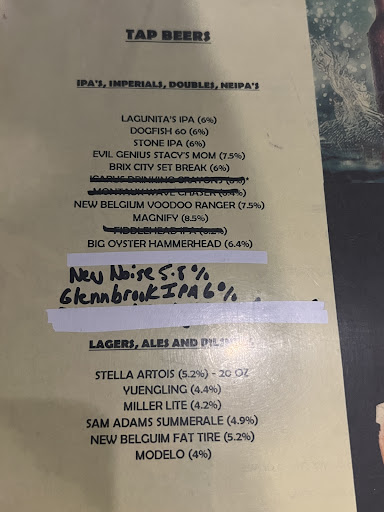 TAP BEERS
IPA'S, IMPERIALS, DOUBLES, NEIPA'S
LAGUNITA'S IPA (6%)
DOGFISH 60 (6%)
STONE IPA (6%)
EVIL GENIUS STACY'S MOM (7.5%)
BRIX CITY SET BREAK (6%)
ICARUS DRINKING CRAYONS
MONTAUK WAVE CHASER (6.4%)
NEW BELGIUM VOODOO RANGER (7.5%)
MAGNIFY (8.5%)
FIDDLEHEAD IPA (6.2%)
BIG OYSTER HAMMERHEAD (6.4%)
New Noise 5.8%
Glennbrook IPA 6%
LAGERS, ALES AND
STELLA ARTOIS (5.2%) - 20 OZ
YUENGLING (4.4%)
MILLER LITE (4.2%)
SAM ADAMS SUMMERALE (4.9%)
NEW BELGUIM FAT TIRE (5.2%)
MODELO (4%)